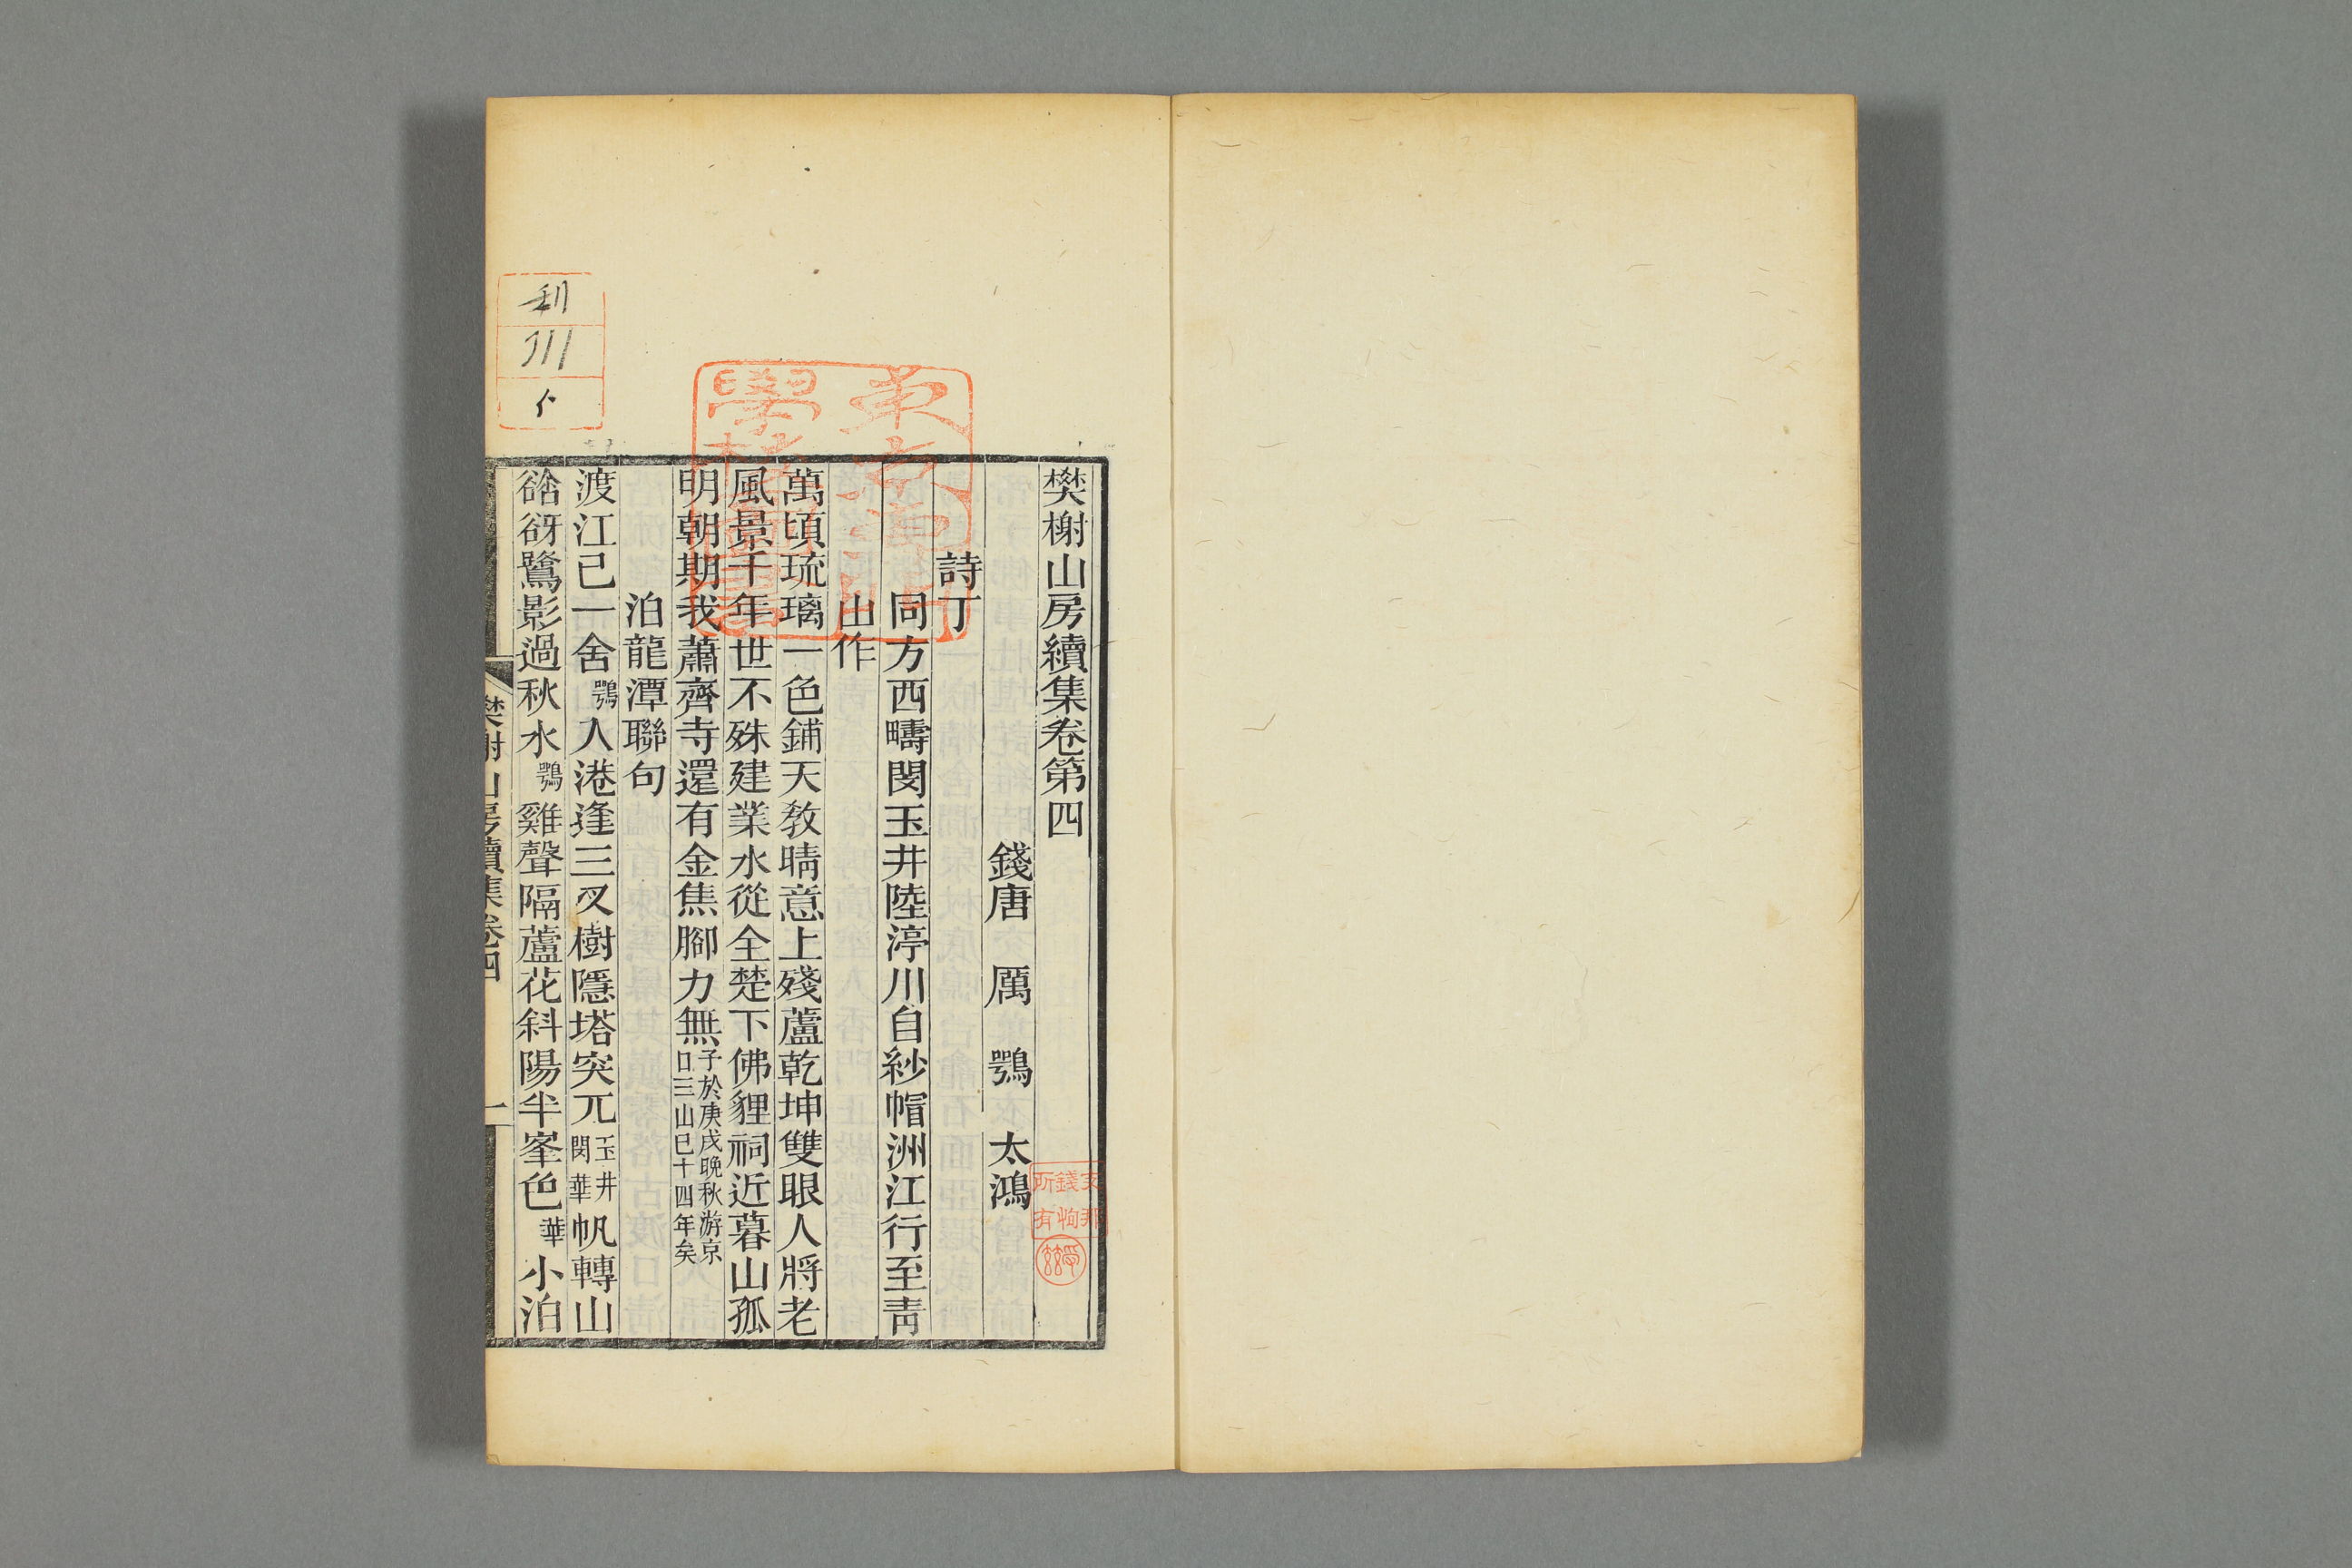 樊榭山房續集卷第四
錢唐 厲 鶚 太鴻
詩丁
同方西疇閔玉井陸渟川自紗帽洲江行至靑
山作
萬頃琉璃一色鋪天敎晴意上殘蘆乾坤雙眼人將老
風景千年世不殊建業水從全楚下佛貍祠近暮山孤
明朝期我蕭齊寺還有金焦腳力無子於庚戌晚秋游京口三山巳十四年矣
泊龍潭聯句
渡江已一舍鶚入港逢三叉樹隱塔突兀玉井閔華帆轉山
谽谺鷺影過秋水鶚雞聲隔蘆花斜陽半峯色華小泊
樊榭山房續集卷四
一
支那錢恂所有